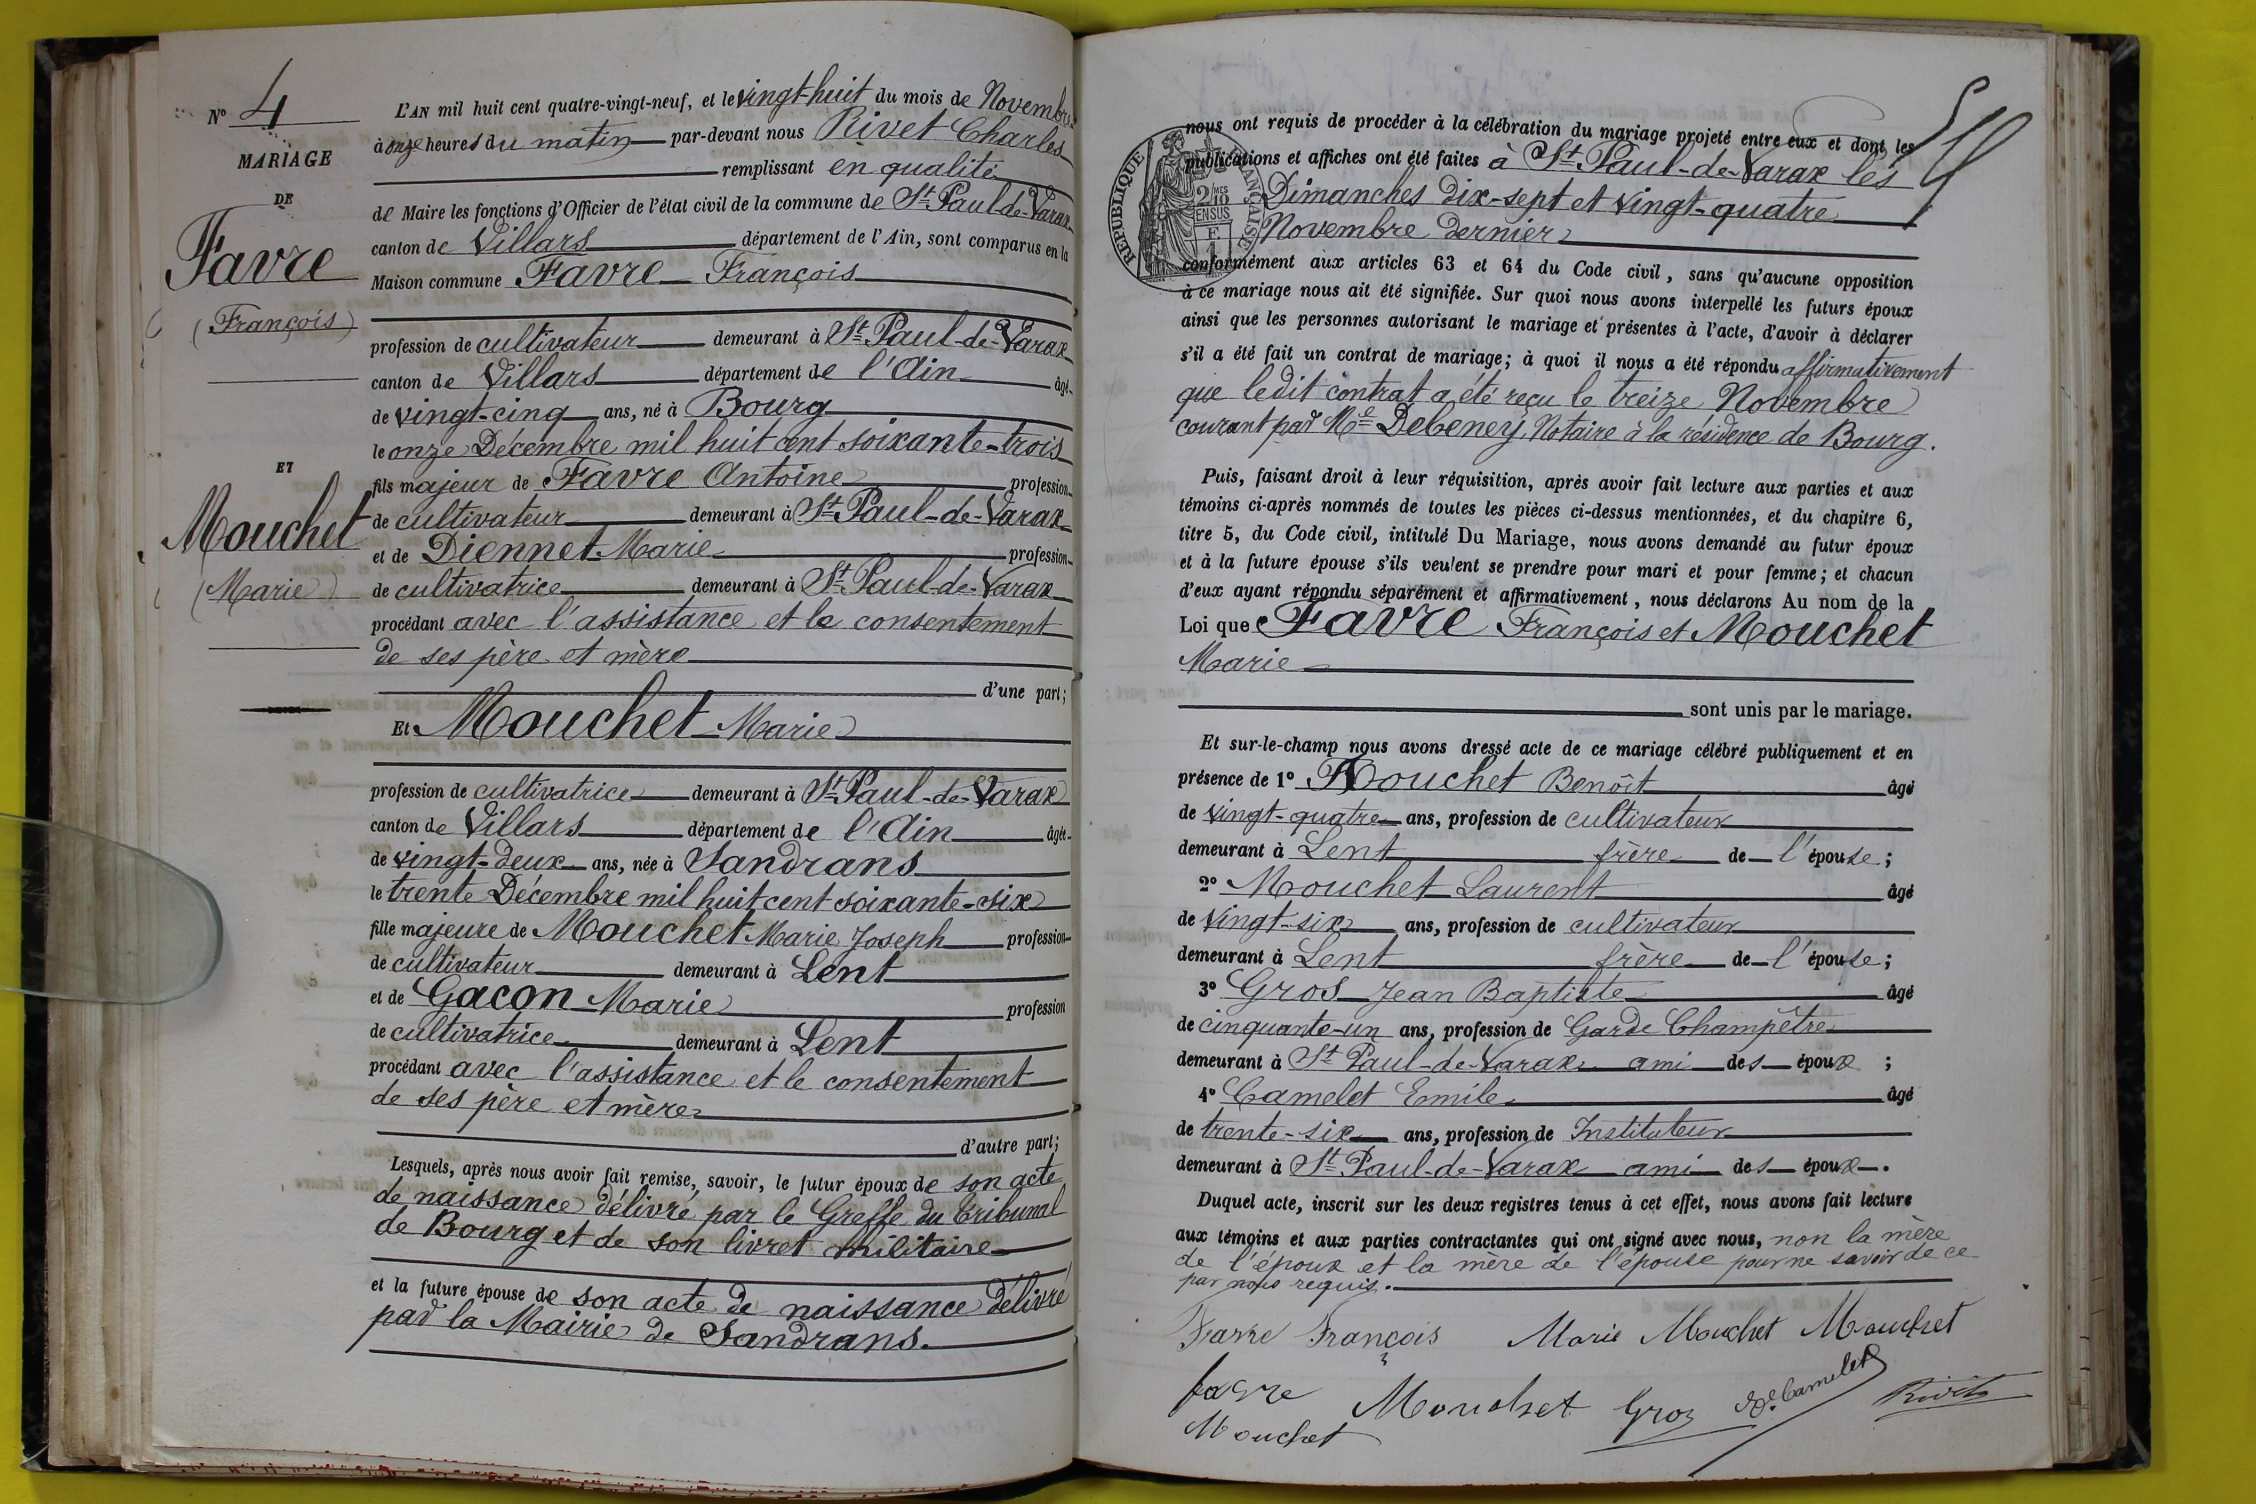 N° 4
MARIAGE
DE
Favre
(François)
ET
Mouchet
(Marie)
L'AN mil huit cent quatre-vingt-neuf, et le vingt-huit du mois de Novembre
à onze heures du matin par-devant nous Rivet Charles
remplissant en qualité
de Maire les fonctions d'Officier de l'état civil de la commune de St Paul-de-Varax
canton de Villars département de l'Ain, sont comparus en la
Maison commune Favre François
profession de cultivateur demeurant à St Paul-de-Varax
canton de Villars département de l'Ain âgé
de vingt-cinq ans, né à Bourg
le onze Décembre mil huit cent soixante-trois
fils majeur de Favre Antoine profession
de cultivateur demeurant à St Paul-de-Varax
et de Diennet Marie profession
de cultivatrice demeurant à St Paul-de-Varax
procédant avec l'assistance et le consentement
de ses père et mère
d'une part;
Et Mouchet Marie
profession de cultivatrice demeurant à St Paul-de-Varax
canton de Villars département de l'Ain âgée
de vingt-deux ans, née à Sandrans
le trente Décembre mil huit cent soixante-six
fille majeure de Mouchet Marie Joseph profession
de cultivateur demeurant à Lent
et de Gacon Marie profession
de cultivatrice demeurant à Lent
procédant avec l'assistance et le consentement
de ses père et mère
d'autre part;
Lesquels, après nous avoir fait remise, savoir, le futur époux de son acte
de naissance délivré par le Greffe du Tribunal
de Bourg et de son livret militaire
et la future épouse de son acte de naissance délivré
par la Mairie de Sandrans.
nous ont requis de procéder à la célébration du mariage projeté entre eux et dont les
publications et affiches ont été faites à St Paul-de-Varax les
Dimanches dix-sept et vingt-quatre
Novembre dernier
RÉPUBLIQUE FRANÇAISE
2 MES
10
EN SUS
conformément aux articles 63 et 64 du Code civil, sans qu'aucune opposition
à ce mariage nous ait été signifiée. Sur quoi nous avons interpellé les futurs époux
ainsi que les personnes autorisant le mariage et présentes à l'acte, d'avoir à déclarer
s'il a été fait un contrat de mariage; à quoi il nous a été répondu affirmativement
que ledit contrat a été reçu le treize Novembre
courant par Me Debeney, Notaire à la résidence de Bourg.
Puis, faisant droit à leur réquisition, après avoir fait lecture aux parties et aux
témoins ci-après nommés de toutes les pièces ci-dessus mentionnées, et du chapitre 6,
titre 5, du Code civil, intitulé Du Mariage, nous avons demandé au futur époux
et à la future épouse s'ils veulent se prendre pour mari et pour femme; et chacun
d'eux ayant répondu séparément et affirmativement, nous déclarons Au nom de la
Loi que Favre François et Mouchet
Marie
sont unis par le mariage.
Et sur-le-champ nous avons dressé acte de ce mariage célébré publiquement et en
présence de 1° Mouchet Benoît âgé
de vingt-quatre ans, profession de cultivateur
demeurant à Lent frère de l'épouse;
2° Mouchet Laurent âgé
de vingt-six ans, profession de cultivateur
demeurant à Lent frère de l'épouse;
3° Gros Jean Baptiste âgé
de cinquante-un ans, profession de Garde Champêtre
demeurant à St Paul-de-Varax ami des époux;
4° Camelet Emile âgé
de trente-six ans, profession de Instituteur
demeurant à St Paul-de-Varax ami des époux.
Duquel acte, inscrit sur les deux registres tenus à cet effet, nous avons fait lecture
aux témoins et aux parties contractantes qui ont signé avec nous, non la mère
de l'époux et la mère de l'épouse pour ne savoir de ce
par nous requis.
Favre François Marie Mouchet Mouchet
favre Mouchet Gros Camelet Rivet
Mouchet